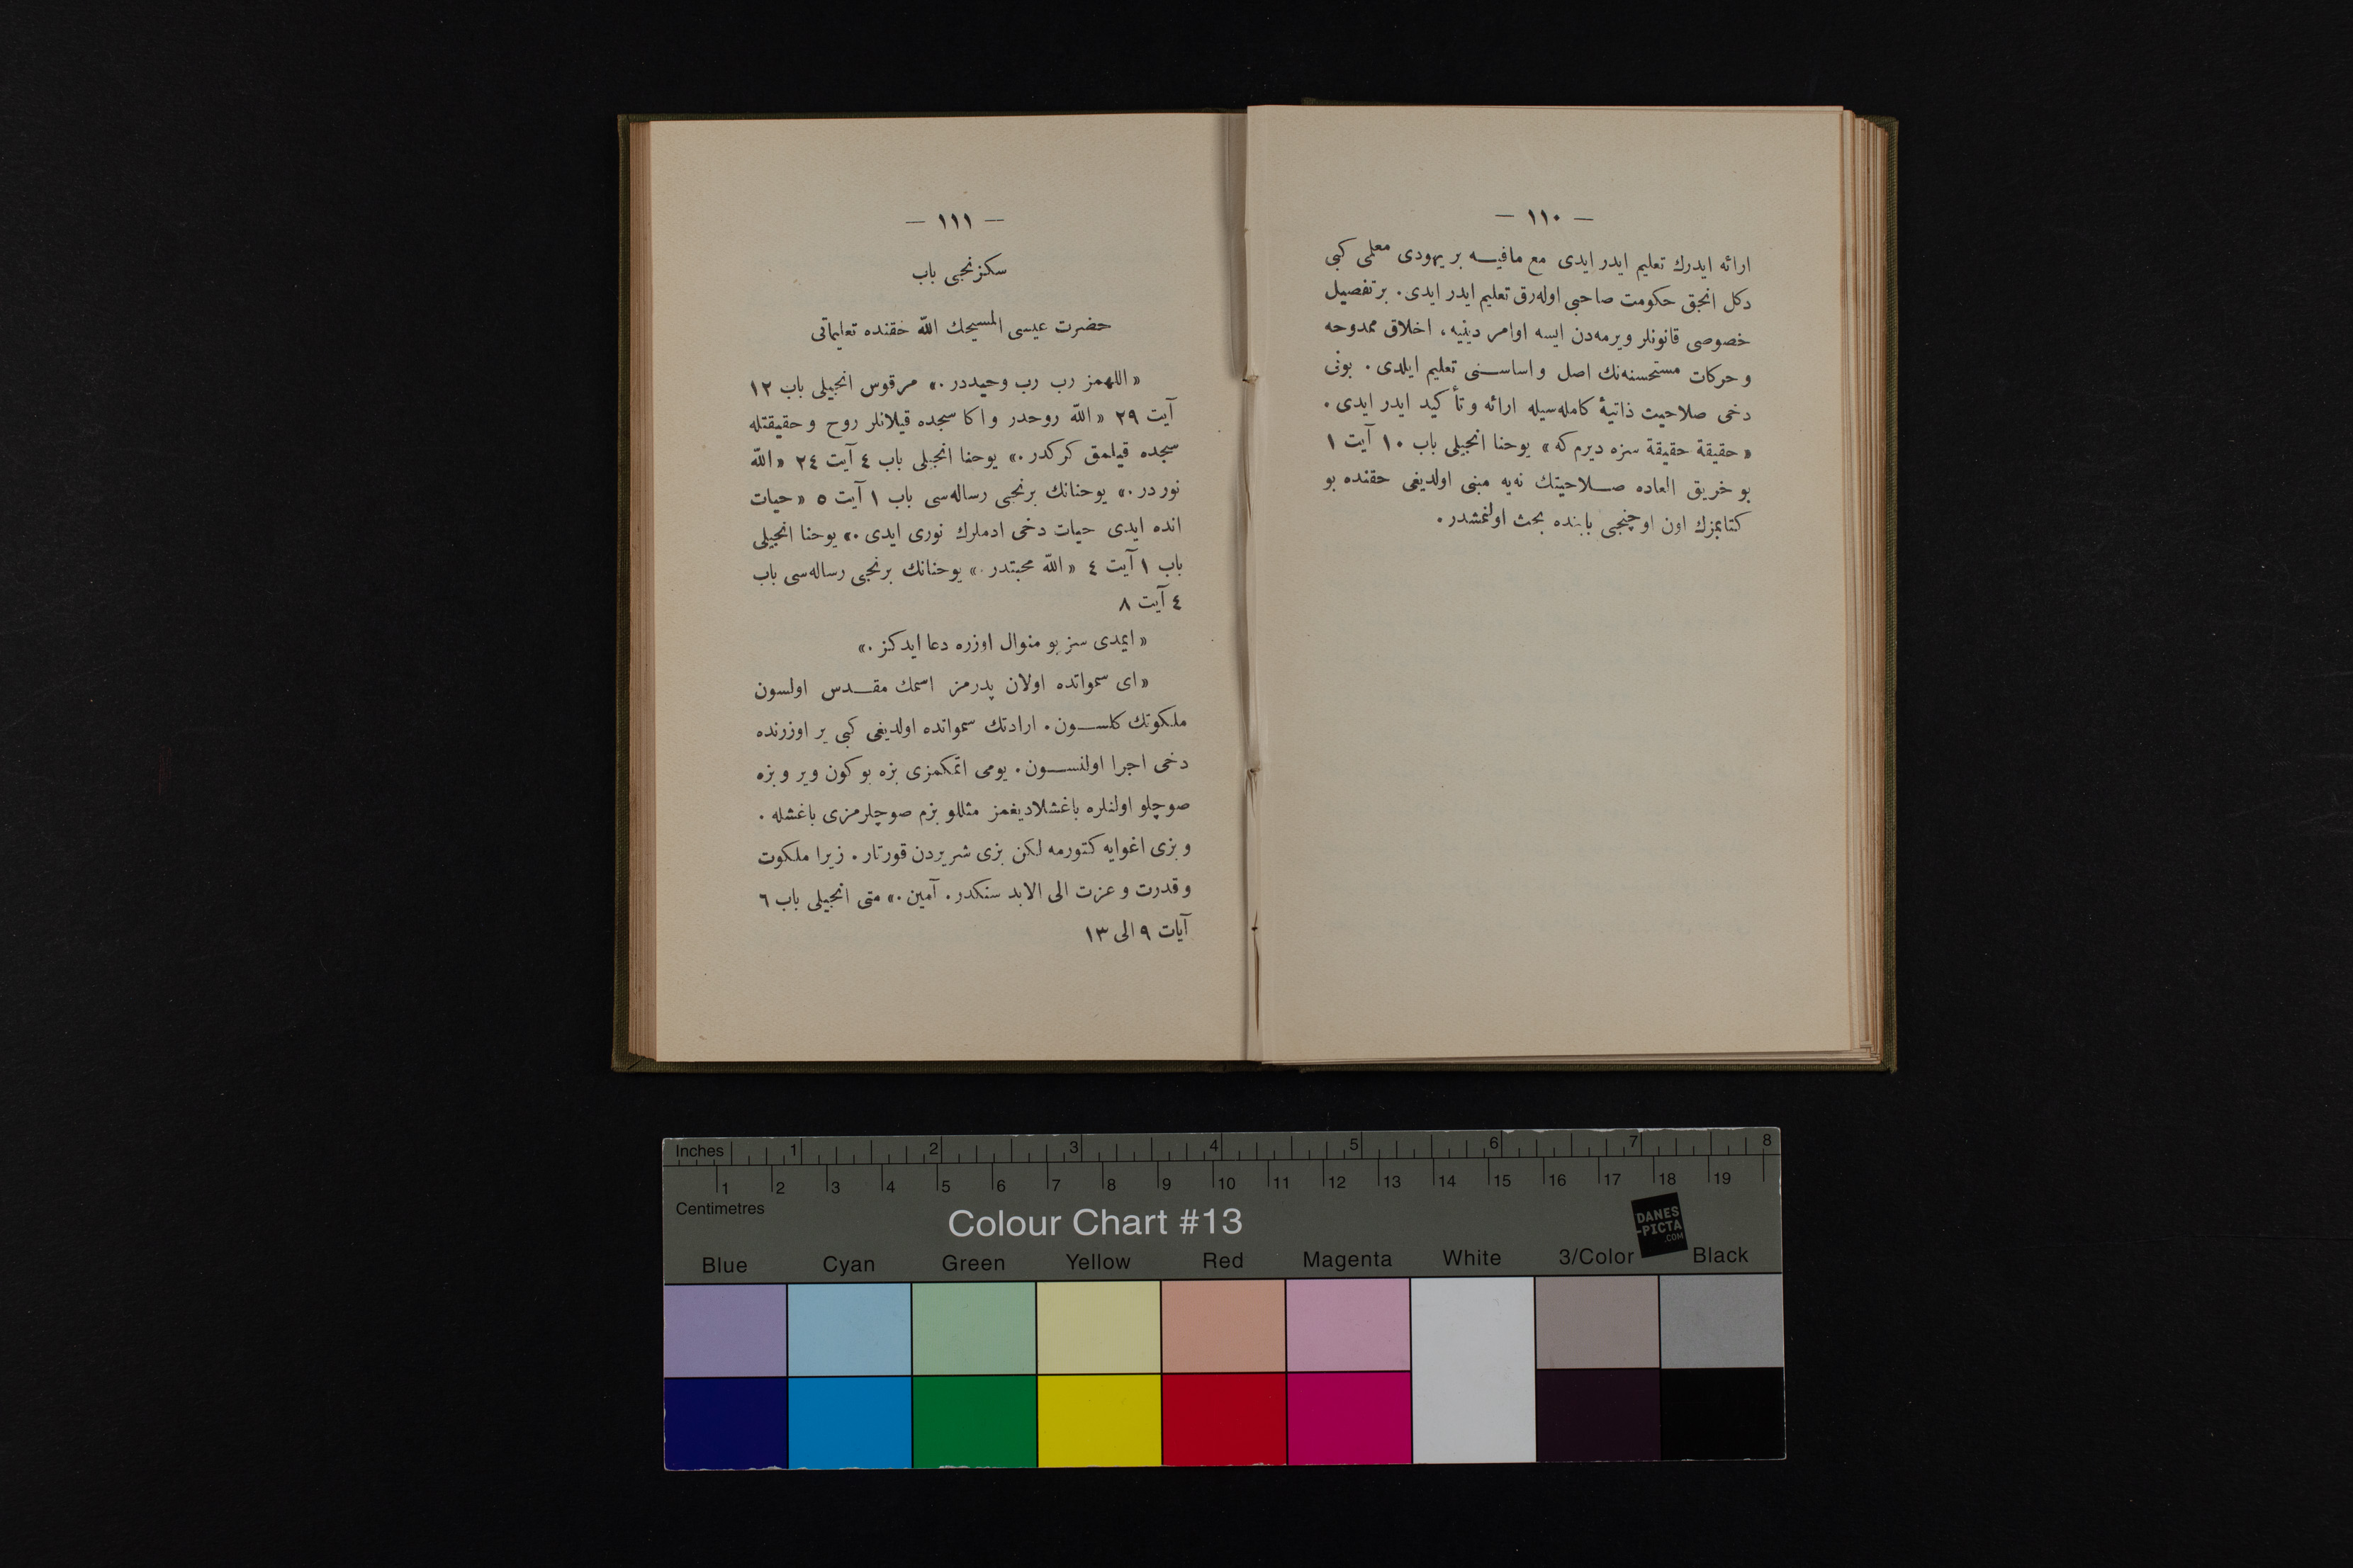 — ١١٠ —
ارائه ايدرك تعليم ايدر ايدى مع مافيه بر يهودى معلمى كبى
دكل انجق حكومت صاحبى اوله‌رق تعليم ايدر ايدى. بر تفصيل
خصوصى قانونلر ويرمه‌دن ايسه اوامر دينيه، اخلاق ممدوحه
و حركات مستحسنه‌نك اصل و اساسنى تعليم ايلدى. بونى
دخى صلاحيت ذاتيۀ كامله‌سيله ارائه و تأكيد ايدر ايدى.
« حقيقة حقيقة سزه ديرم كه » يوحنا انجيلى باب ١٠ آيت ١
بو خريق العاده صلاحيتك نه‌يه مبنى اولديغى حقنده بو
كتابمزك اون اوچنجى بابنده بحث اولنمشدر.
— ١١١ —
سكزنجى باب
حضرت عيسى المسيحك اللّه حقنده تعليماتى
« اللهمز رب رب وحيددر.» مرقوس انجيلى باب ١٢
آيت ٢٩ « اللّه روحدر و اكا سجده قيلانلر روح و حقيقتله
سجده قيلمق كركدر.» يوحنا انجيلى باب ٤ آيت ٢٤ « اللّه
نور در.» يوحنانك برنجى رساله‌سى باب ١ آيت ٥ « حيات
انده ايدى حيات دخى ادملرك نورى ايدى.» يوحنا انجيلى
باب ١ آيت ٤ « اللّه محبتدر.» يوحنانك برنجى رساله‌سى باب
٤ آيت ٨
« ايمدى سز بو منوال اوزره دعا ايدكز.»
« اى سمواتده اولان پدرمز اسمك مقدس اولسون
ملكوتك كلسون. ارادتك سمواتده اولديغى كبى ير اوزرنده
دخى اجرا اولنسون. يومى اتمكمزى بزه بو كون وير و بزه
صوچلو اولنلره باغشلاديغمز مثللو بزم صوچلرمزى باغشله.
و بزى اغوايه كتورمه لكن بزى شريردن قورتار. زيرا ملكوت
و قدرت و عزت الى الابد سنكدر. آمين.» متى انجيلى باب ٦
آيات ٩ الى ١٣
Inches 1 2 3 4 5 6 7 8
1 2 3 4 5 6 7 8 9 10 11 12 13 14 15 16 17 18 19
Centimetres
Colour Chart #13
DANES
-PICTA
.COM
Blue Cyan Green Yellow Red Magenta White 3/Color Black